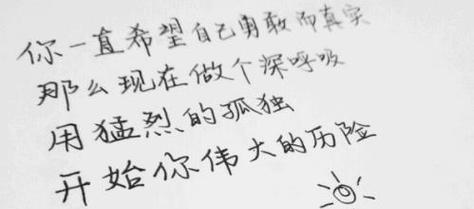 你一直希望自己勇敢而真实
那么现在做个深呼吸
用猛烈的孤独
开始你伟大的历险